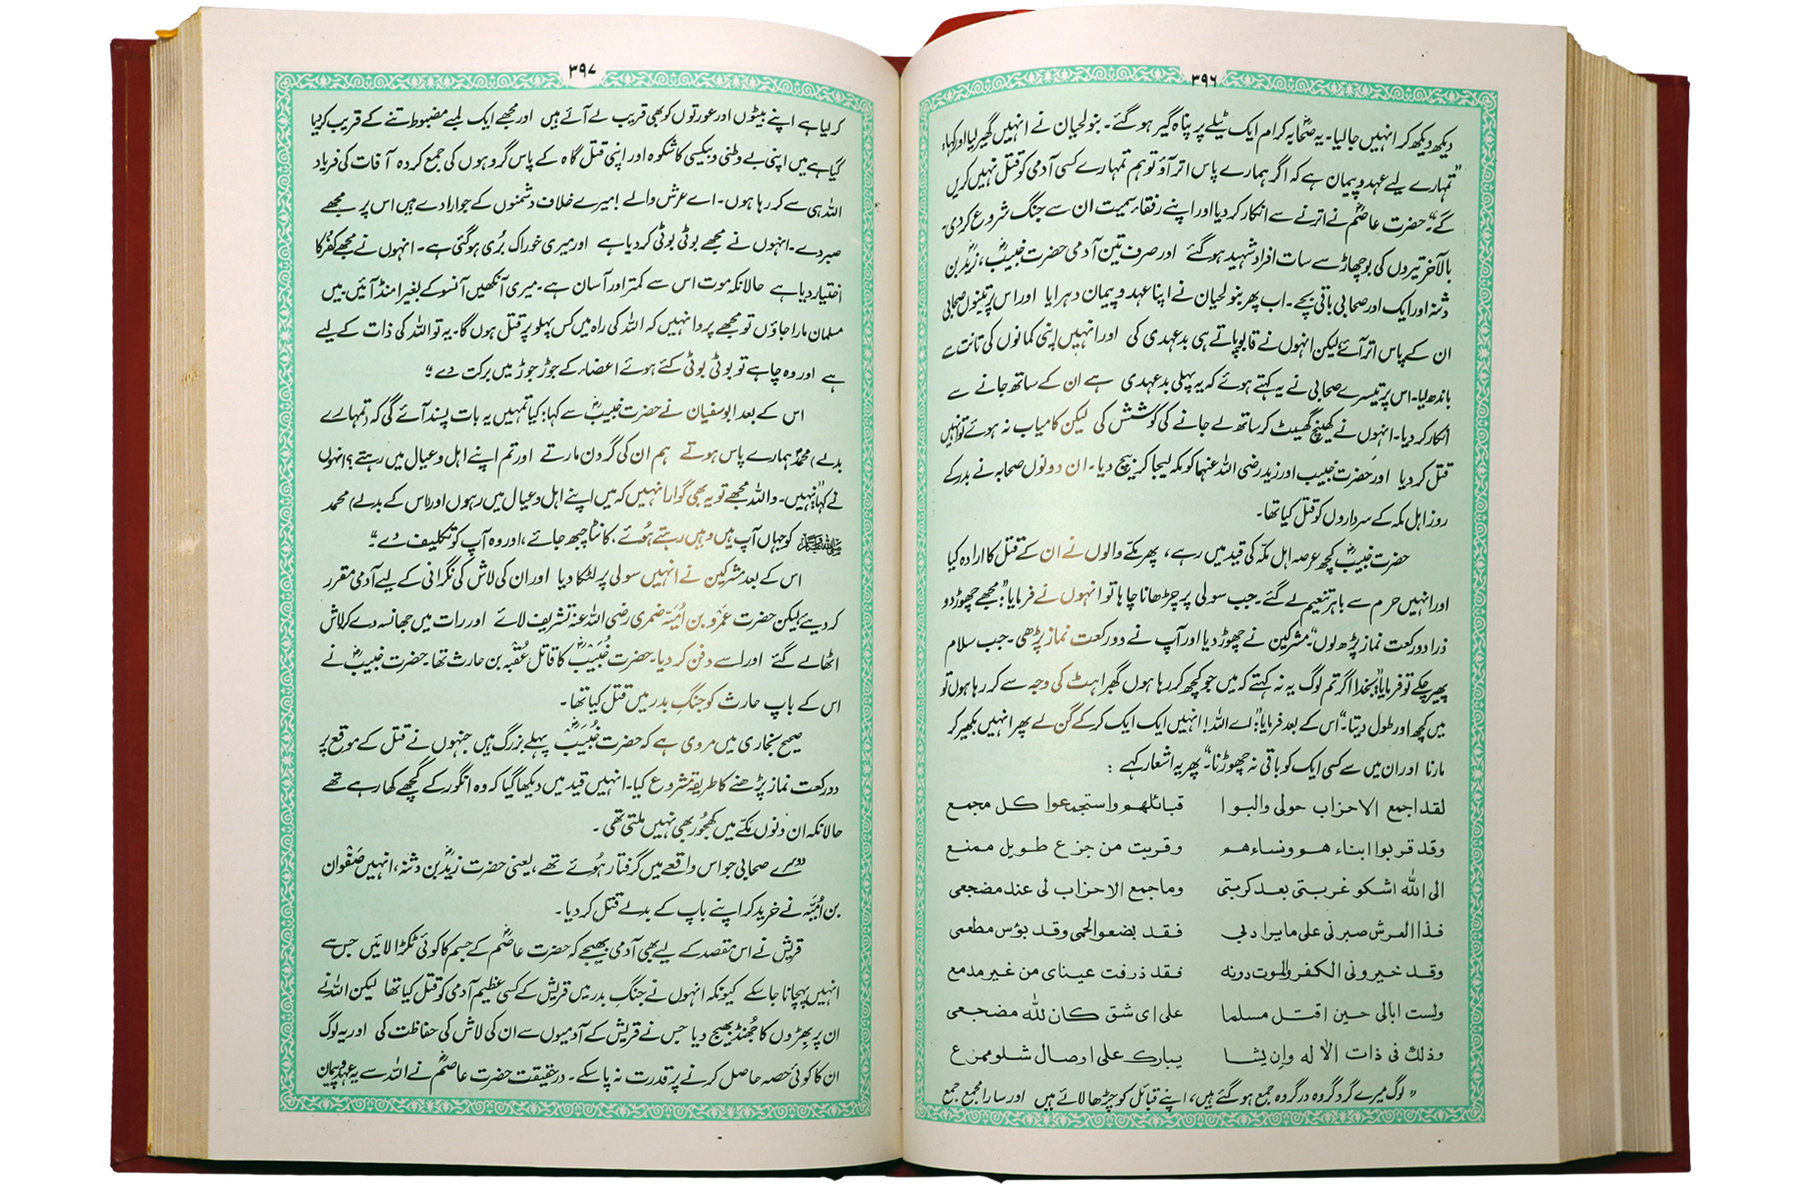 ۳۹۶
دیکھ دیکھ کر انہیں جا لیا۔ یہ صحابہ کرام ایک ٹیلے پر پناہ گیر ہو گئے۔ بنو لحیان نے انہیں گھیر لیا اور کہا،
”تمہارے لیے عہد و پیمان ہے کہ اگر ہمارے پاس اتر آؤ تو ہم تمہارے کسی آدمی کو قتل نہیں کریں
گے“۔ حضرت عاصمؓ نے اترنے سے انکار کر دیا اور اپنے رفقاء سمیت ان سے جنگ شروع کر دی۔
بالآخر تیروں کی بوچھاڑ سے سات افراد شہید ہو گئے اور صرف تین آدمی حضرت خبیبؓ، زیدؓ بن
دثنہ اور ایک اور صحابی باقی بچے۔ اب پھر بنو لحیان نے اپنا عہد و پیمان دہرایا اور اس پر تینوں صحابی
ان کے پاس اتر آئے لیکن انہوں نے قابو پاتے ہی بدعہدی کی اور انہیں اپنی کمانوں کی تانت سے
باندھ لیا۔ اس پر تیسرے صحابی نے یہ کہتے ہوئے کہ یہ پہلی بدعہدی ہے ان کے ساتھ جانے سے
انکار کر دیا۔ انہوں نے کھینچ گھسیٹ کر ساتھ لے جانے کی کوشش کی لیکن کامیاب نہ ہوئے تو انہیں
قتل کر دیا اور حضرت خبیب اور زید رضی اللہ عنہما کو مکہ لیجا کر بیچ دیا۔ ان دونوں صحابہ نے بدر کے
روز اہل مکہ کے سرداروں کو قتل کیا تھا۔
حضرت خبیبؓ کچھ عرصہ اہل مکہ کی قید میں رہے، پھر مکّے والوں نے ان کے قتل کا ارادہ کیا
اور انہیں حرم سے باہر تنعیم لے گئے۔ جب سولی پر چڑھانا چاہا تو انہوں نے فرمایا: ”مجھے چھوڑ دو
ذرا دو رکعت نماز پڑھ لوں“۔ مشرکین نے چھوڑ دیا اور آپ نے دو رکعت نماز پڑھی۔ جب سلام
پھیر چکے تو فرمایا: ”بخدا اگر تم لوگ یہ نہ کہتے کہ میں جو کچھ کر رہا ہوں گھبراہٹ کی وجہ سے کر رہا ہوں تو
میں کچھ اور طول دیتا“۔ اس کے بعد فرمایا: ”اے اللہ! انہیں ایک ایک کر کے گن لے پھر انہیں بکھیر کر
مارنا اور ان میں سے کسی ایک کو باقی نہ چھوڑنا“۔ پھر یہ اشعار کہے :
لقد اجمع الاحزاب حولی والبوا قبائلهم واستجمعوا کل مجمع
وقد قربوا ابناء هم ونساءهم وقربت من جزع طویل ممنع
الی الله اشکو غربتی بعد کربتی وما جمع الاحزاب لی عند مضجعی
فذا العرش صبرنی علی ما یراد بی فقد بضعوا لحمی وقد بؤس مطعمی
وقد خیرونی الکفر والموت دونه فقد ذرفت عینای من غیر مدمع
ولست ابالی حین اقتل مسلما علی ای شق کان لله مضجعی
وذلك فی ذات الاله وإن یشا یبارك علی اوصال شلو ممزع
”لوگ میرے گرد گروہ در گروہ جمع ہو گئے ہیں، اپنے قبائل کو چڑھا لائے ہیں اور سارا مجمع جمع
۳۹۷
کر لیا ہے اپنے بیٹوں اور عورتوں کو بھی قریب لے آئے ہیں اور مجھے ایک لمبے مضبوط تنے کے قریب کر دیا
گیا ہے میں اپنی بے وطنی و بیکسی کا شکوہ اور اپنی قتل گاہ کے پاس گروہوں کی جمع کردہ آفات کی فریاد
اللہ ہی سے کر رہا ہوں۔ اے عرش والے! میرے خلاف دشمنوں کے جو ارادے ہیں اس پر مجھے
صبر دے۔ انہوں نے مجھے بوٹی بوٹی کر دیا ہے اور میری خوراک بُری ہو گئی ہے۔ انہوں نے مجھے کفر کا
اختیار دیا ہے حالانکہ موت اس سے کمتر اور آسان ہے۔ میری آنکھیں آنسو کے بغیر امنڈ آئیں۔ میں
مسلمان مارا جاؤں تو مجھے پروا نہیں کہ اللہ کی راہ میں کس پہلو پر قتل ہوں گا۔ یہ تو اللہ کی ذات کے لیے
ہے اور وہ چاہے تو بوٹی بوٹی کئے ہوئے اعضاء کے جوڑ جوڑ میں برکت دے“۔
اس کے بعد ابوسفیان نے حضرت خبیبؓ سے کہا: کیا تمہیں یہ بات پسند آئے گی کہ (تمہارے
بدلے) محمدؐ ہمارے پاس ہوتے ہم ان کی گردن مارتے اور تم اپنے اہل و عیال میں رہتے؟ انہوں
نے کہا: ”نہیں۔ واللہ مجھے تو یہ بھی گوارا نہیں کہ میں اپنے اہل و عیال میں رہوں اور (اس کے بدلے) محمد
ﷺ کو جہاں آپ ہیں وہیں رہتے ہُوئے، کانٹا چبھ جائے، اور وہ آپ کو تکلیف دے“۔
اس کے بعد مشرکین نے انہیں سولی پر لٹکا دیا اور ان کی لاش کی نگرانی کے لیے آدمی مقرر
کر دیے لیکن حضرت عمرو بن اُمیّہ ضمری رضی اللہ عنہ تشریف لائے اور رات میں جھانسہ دے کر لاش
اٹھا لے گئے اور اسے دفن کر دیا۔ حضرت خُبیبؓ کا قاتل عُقبہ بن حارث تھا۔ حضرت خبیبؓ نے
اس کے باپ حارث کو جنگِ بدر میں قتل کیا تھا۔
صحیح بخاری میں مروی ہے کہ حضرت خُبیبؓ پہلے بزرگ ہیں جنہوں نے قتل کے موقع پر
دو رکعت نماز پڑھنے کا طریقہ مشروع کیا۔ انہیں قید میں دیکھا گیا کہ وہ انگور کے گچھے کھا رہے تھے
حالانکہ ان دنوں مکّے میں کھجور بھی نہیں ملتی تھی۔
دوسرے صحابی جو اس واقعے میں گرفتار ہُوئے تھے، یعنی حضرت زیدؓ بن دثنہ، انہیں صَفْوان
بن اُمیّہ نے خرید کر اپنے باپ کے بدلے قتل کر دیا۔
قریش نے اس مقصد کے لیے بھی آدمی بھیجے کہ حضرت عاصمؓ کے جسم کا کوئی ٹکڑا لائیں جس سے
انہیں پہچانا جا سکے کیونکہ انہوں نے جنگِ بدر میں قریش کے کسی عظیم آدمی کو قتل کیا تھا لیکن اللہ نے
ان پر بِھڑوں کا جُھنڈ بھیج دیا جس نے قریش کے آدمیوں سے ان کی لاش کی حفاظت کی اور یہ لوگ
ان کا کوئی حصہ حاصل کرنے پر قدرت نہ پا سکے۔ درحقیقت حضرت عاصمؓ نے اللہ سے یہ عہد و پیمان